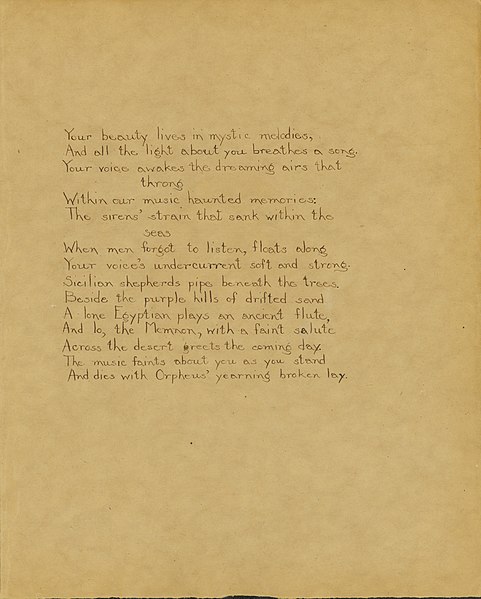 Your beauty lives in mystic melodies,
And all the light about you breathes a song.
Your voice awakes the dreaming airs that
throng
Within our music haunted memories:
The sirens' strain that sank within the
seas
When men forgot to listen, floats along
Your voice's undercurrent soft and strong.
Sicilian shepherds pipe beneath the trees.
Beside the purple hills of drifted sand
A lone Egyptian plays an ancient flute,
And lo, the Memnon, with a faint salute
Across the desert greets the coming day.
The music faints about you as you stand
And dies with Orpheus' yearning broken lay.